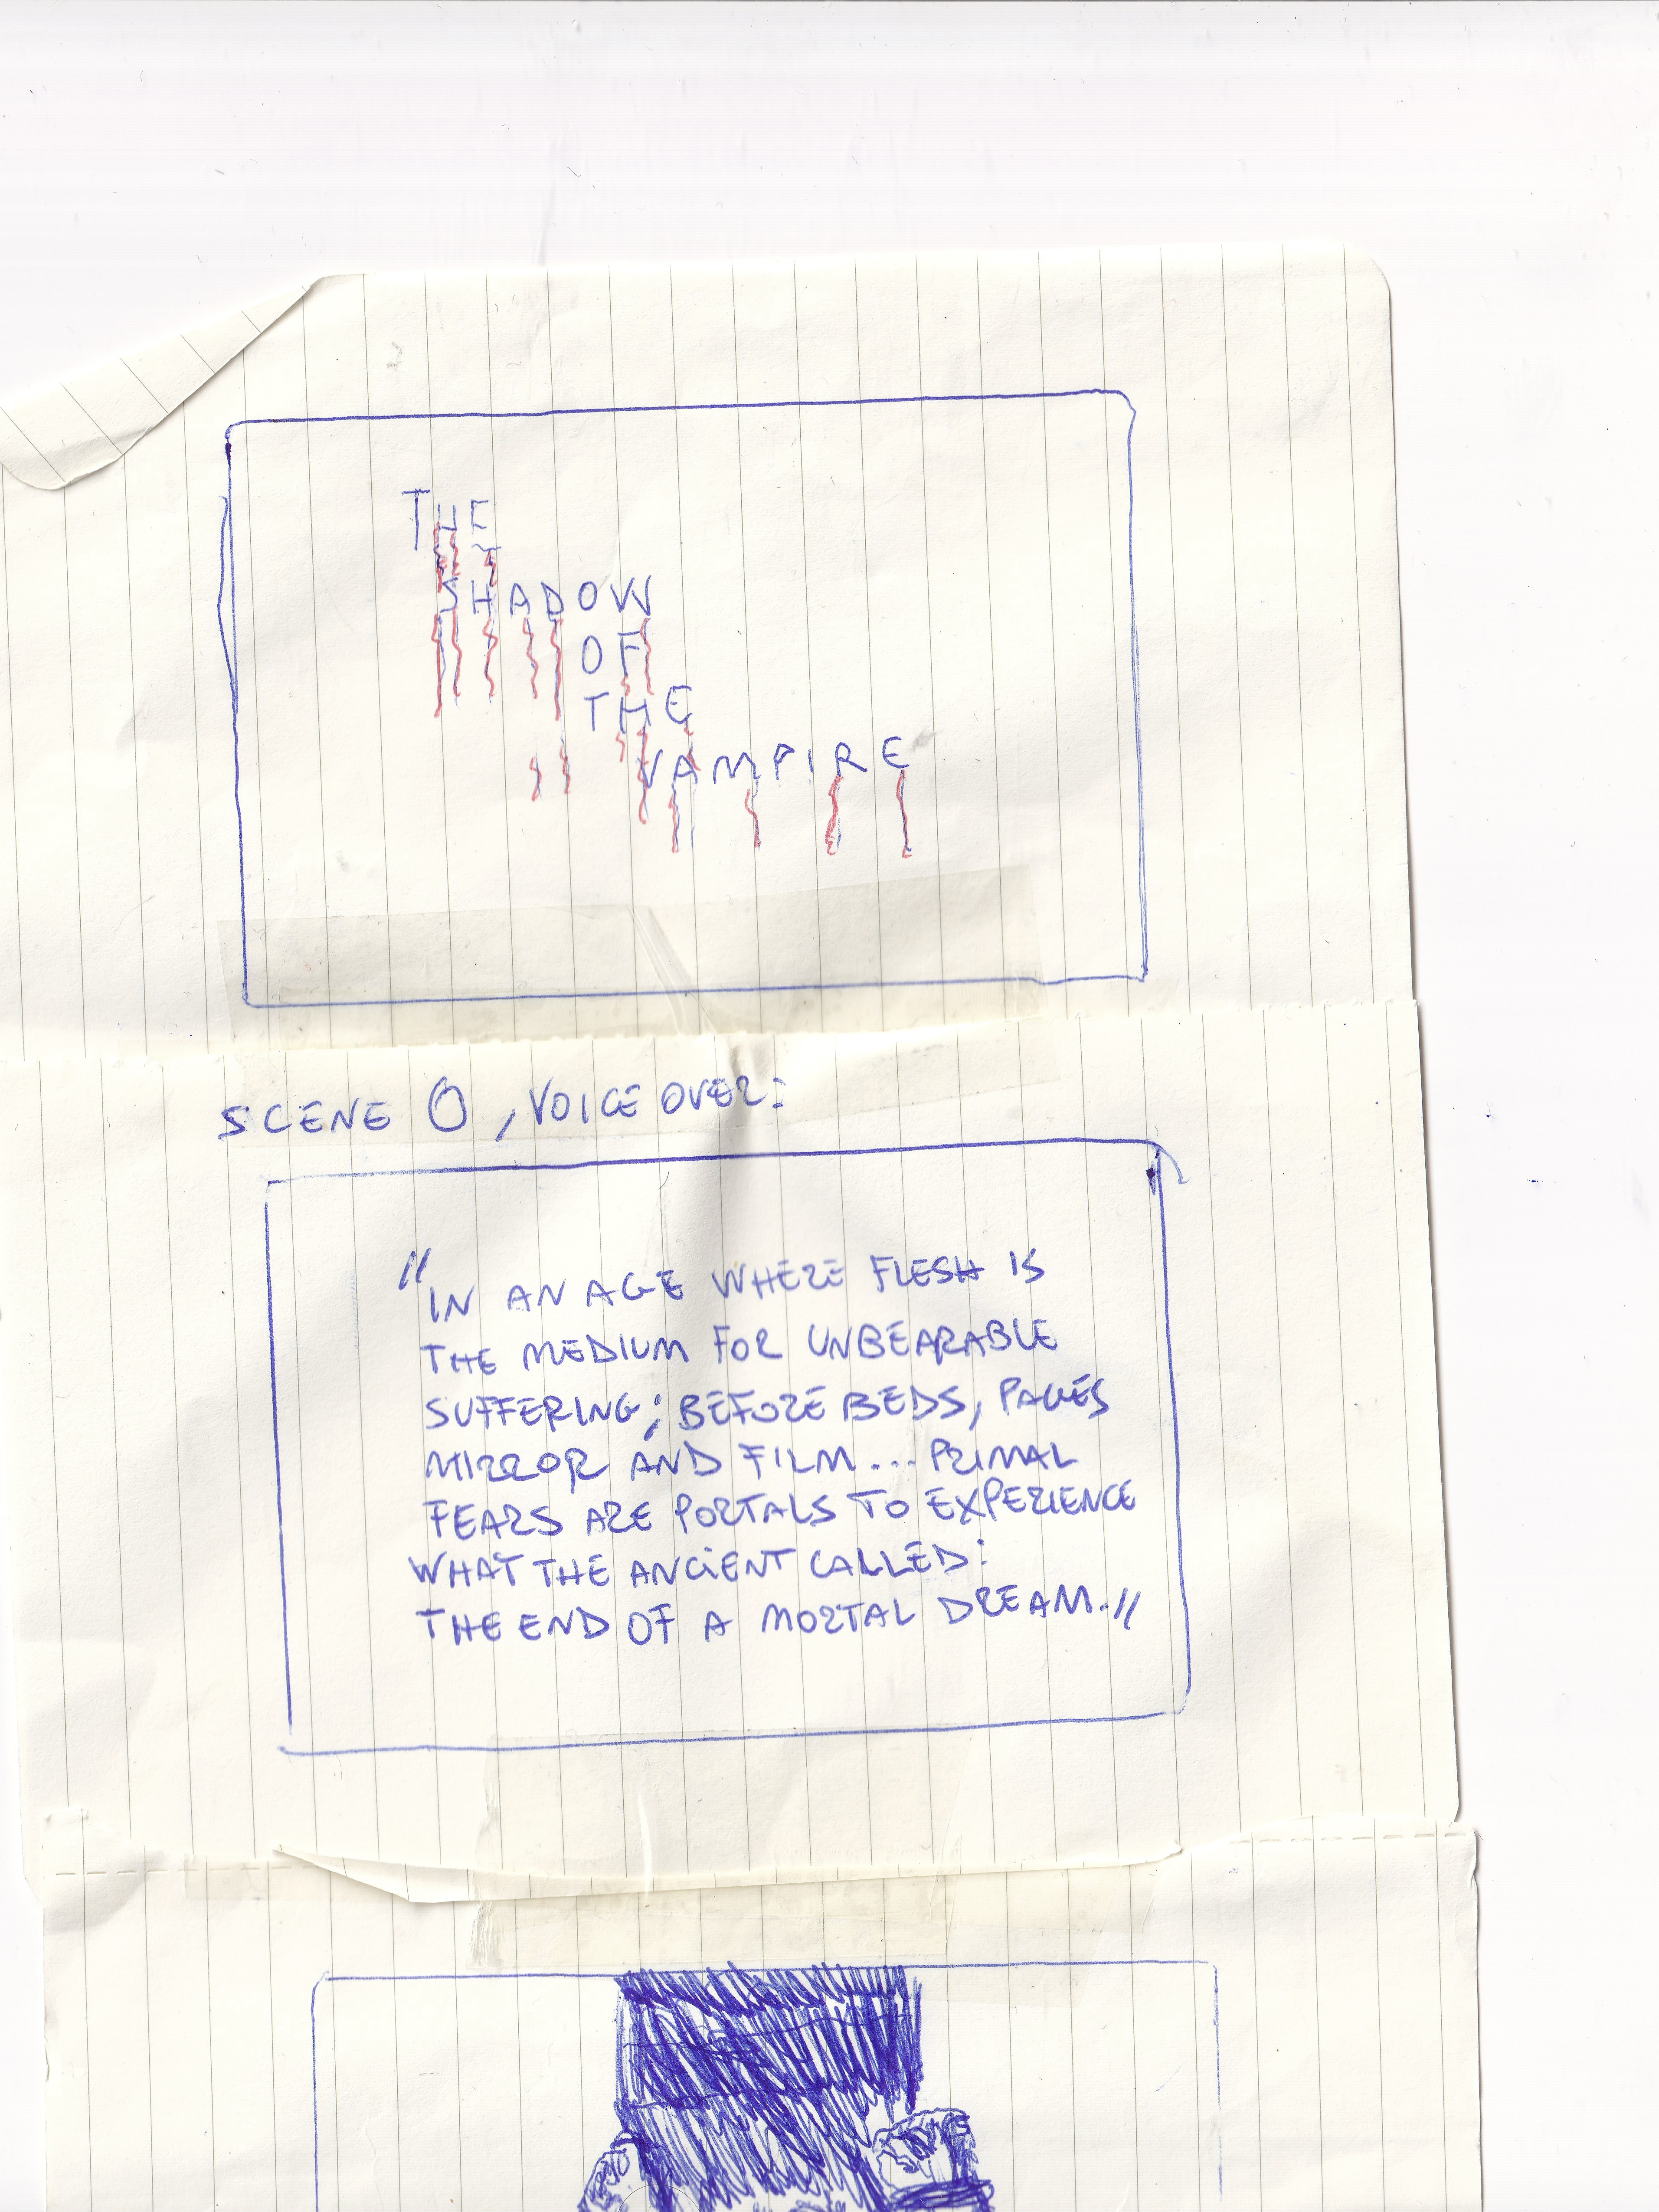 THE
SHADOW
OF
THE
VAMPIRE
SCENE 0, VOICE OVER:
"IN AN AGE WHERE FLESH IS
THE MEDIUM FOR UNBEARABLE
SUFFERING; BEFORE BEDS, PAGES
MIRROR AND FILM... PRIMAL
FEARS ARE PORTALS TO EXPERIENCE
WHAT THE ANCIENT CALLED:
THE END OF A MORTAL DREAM."